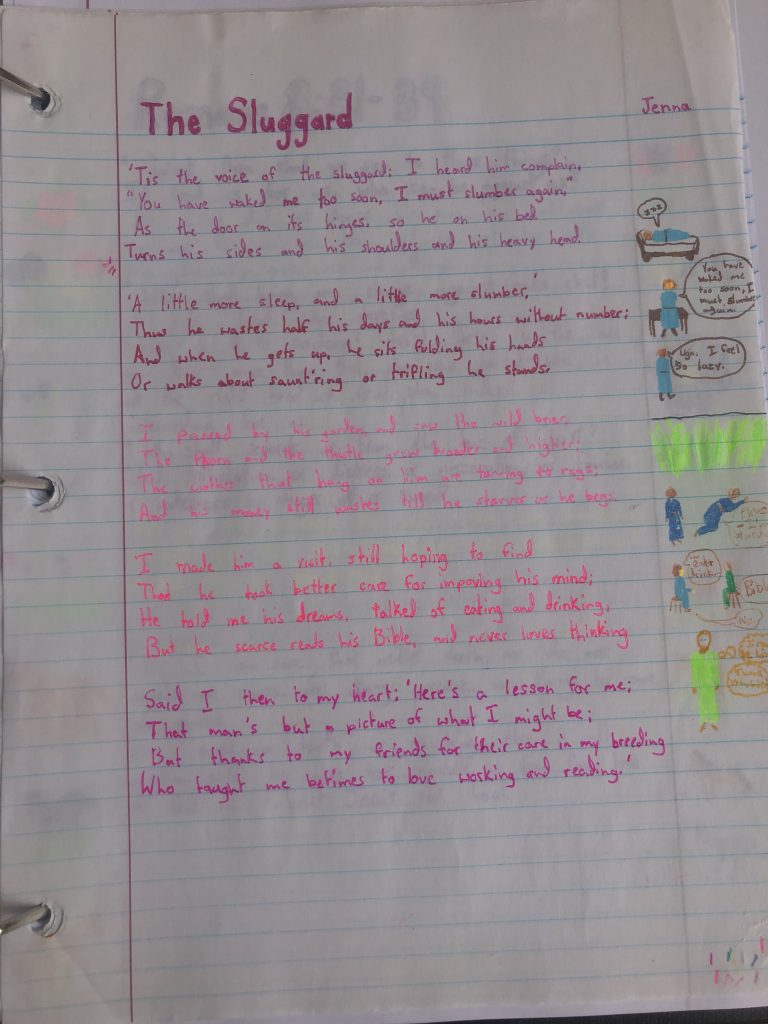 The Sluggard
Jenna
'Tis the voice of the sluggard; I heard him complain,
"You have waked me too soon, I must slumber again,"
As the door on its hinges, so he on his bed
Turns his sides and his shoulders and his heavy head.
'A little more sleep, and a little more slumber,'
Thus he wastes half his days and his hours without number:
And when he gets up, he sits folding his hands
Or walks about saunt'ring or trifling he stands.
I passed by his garden, and saw the wild brier,
The thorn and the thistle grow broader and higher:
The clothes that hang on him are turning to rags;
And his money still wastes till he starves or he begs.
I made him a visit, still hoping to find
That he took better care for impoving his mind;
He told me his dreams, talked of eating and drinking,
But he scarce reads his Bible, and never loves thinking
Said I then to my heart; 'Here's a lesson for me;
That man's but a picture of what I might be;
But thanks to my friends for their care in my breeding
Who taught me betimes to love working and reading.'
zzz
You have
waked me
too soon, I
must slumber
again.
Ugh, I feel
so lazy.
Bible